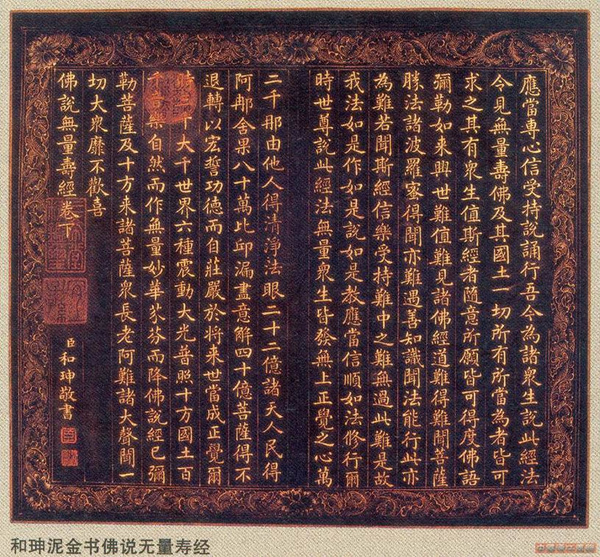 應當專心信受持說誦行吾今為諸衆生說此經法
令見無量壽佛及其國土一切所有所當為者皆可
求之其有衆生值斯經者隨意所願皆可得度佛語
彌勒如来興世難值難見諸佛經道難得難聞菩薩
勝法諸波羅蜜得聞亦難遇善知識聞法能行此亦
為難若聞斯經信樂受持難中之難無過此難是故
我法如是作如是說如是教應當信順如法修行爾
時世尊說此經法無量衆生皆發無上正覺之心萬
二千那由他人得清淨法眼二十二億諸天人民得
阿那舍果八十萬比丘漏盡意解四十億菩薩得不
退轉以宏誓功德而自莊嚴於將来世當成正覺爾
時千大千世界六種震動大光普照十方國土百
千樂自然而作無量妙華芬芬而降佛說經已彌
勒菩薩及十方来諸菩薩衆長老阿難諸大聲聞一
切大衆靡不歡喜
佛說無量壽經卷下
臣和珅敬書
和珅泥金书佛说无量寿经